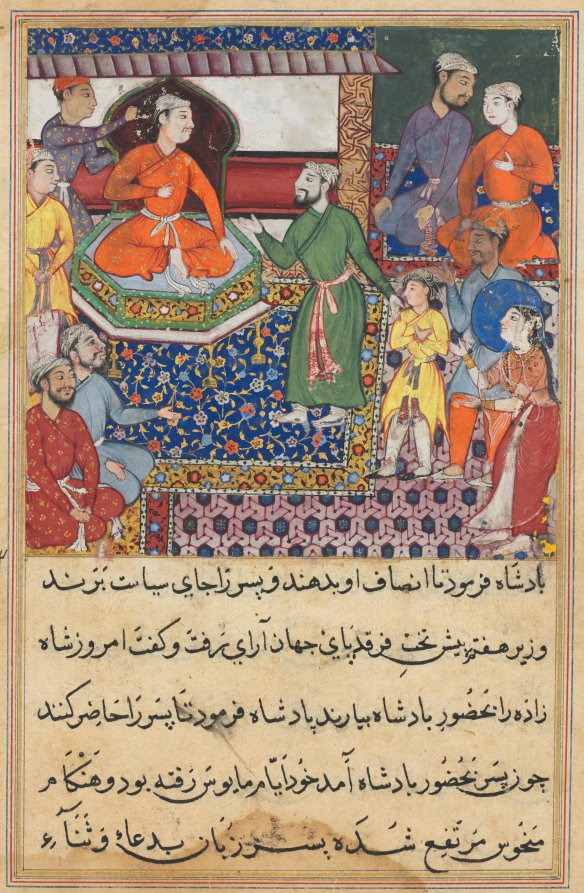 بادشاه فرمود تا انصاف او بدهند و پسر را جای سیاست برند
وزیر هفتم پیش تخت فرقد پای جهان آرای رفت و گفت امروز شاه
زاده را بحضور بادشاه بیارند بادشاه فرمود تا پسر را حاضر کنند
چون پسر بحضور بادشاه آمد خود ایام مایوس رفته بود و هنکام
منحوس مرتفع شده پسر زبان بدعاء و ثناء